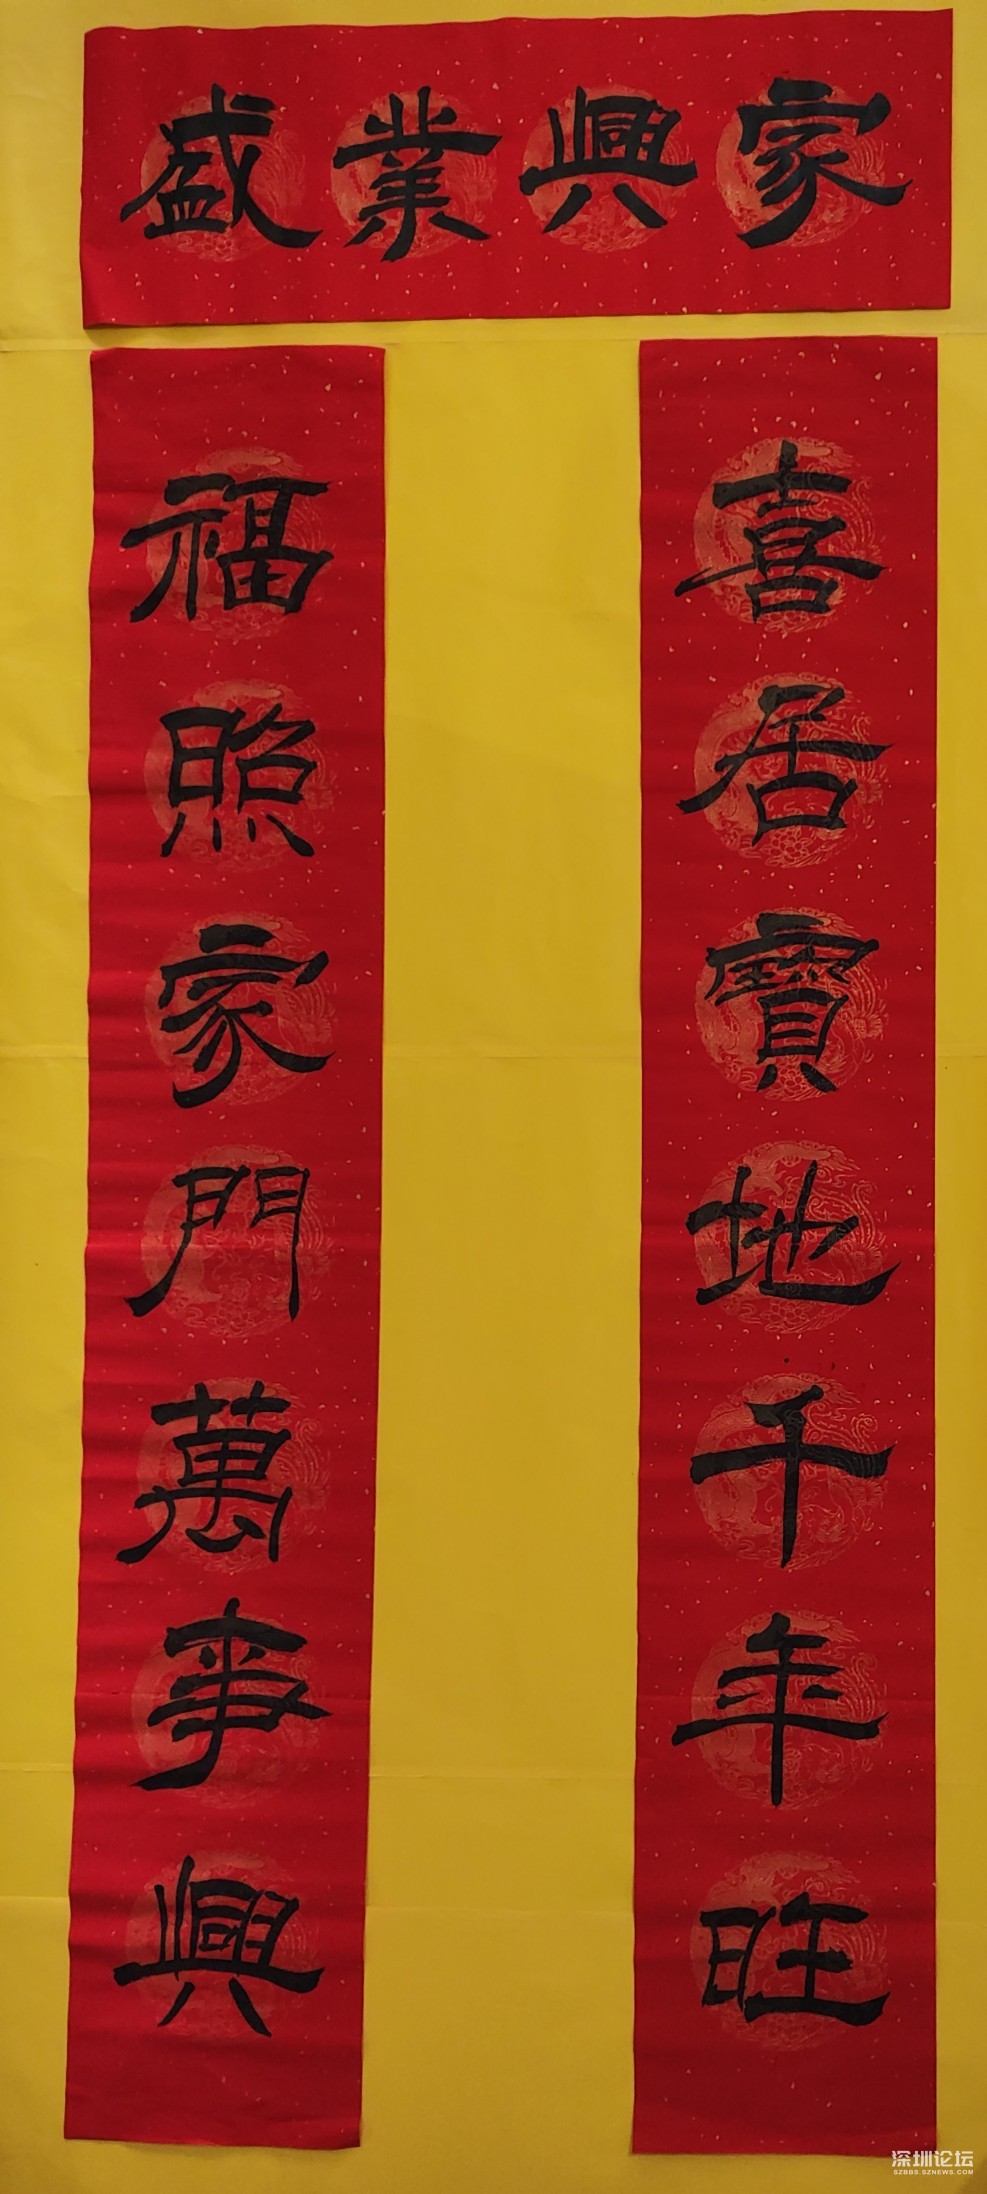 家興業盛
喜居寶地千年旺
福照家門萬事興
深圳论坛
SZBBS.SZNEWS.COM